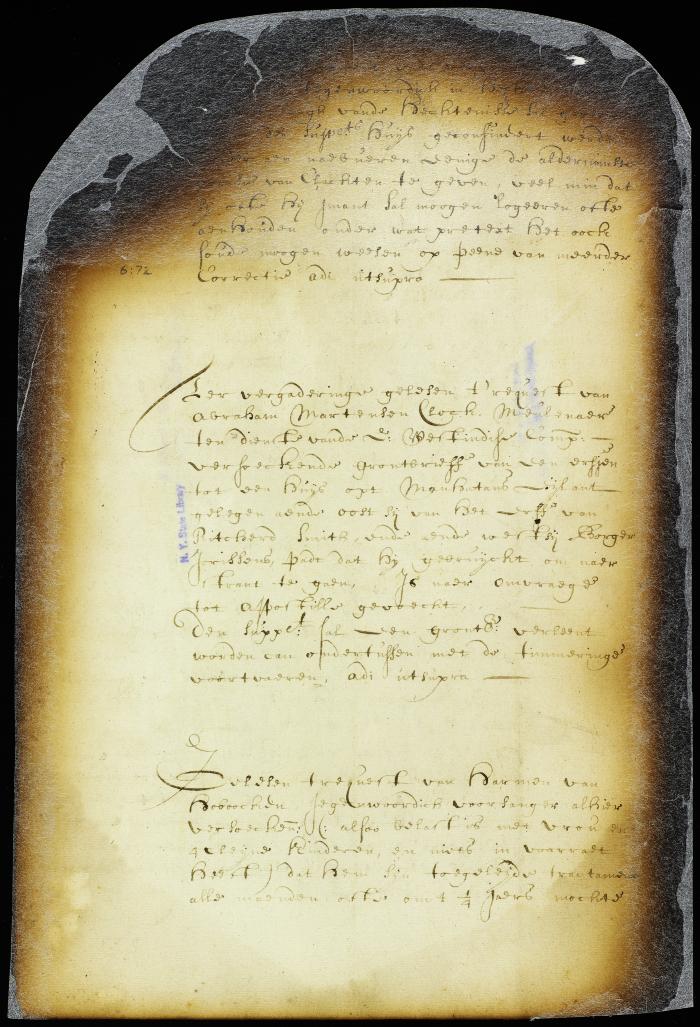 tegenwoordich in
vande hechtenisse
des supplts huys geconfineert werden
naebueren eenige de alderminste
van clachten te geven, veel min dat
hy imant sal moogen logeeren ofte
aenhouden onder wat pretext het oock
soude moogen weesen op peene van meerder
Correctie adi utsupra
6:72
Ter vergaderinge gelesen t'request van
Abraham Martensen Clock. Meulenaer
ten dienste vande E: Westindise Comp:
versoeckende grontbrieff van een erffjen
tot een huys opt Manhatans Eylant
gelegen aende oost sy van het erff van
Ritcherd Smith, ende aende westsy Borger
Jrissens, padt dat hy gebruyckt om naer
strant te gaen, Is naer omvraege
tot Apostille gevoecht,
Den Supplt: sal een grontb: verleent
worden can ondertussen met de timmeringe
voortvaeren, adi utsupra
N. Y. State Library
Gelesen t request van Harmen van
Hoboocken Jegenwoordich voorsanger alhier
versoecken: (: alsoo belast is met vrou en
4 cleyne kinderen, en niets in voorraet
heeft) dat hem syn toegeleyde tractament
alle maenden ofte omt 1/4 Jaers mochte